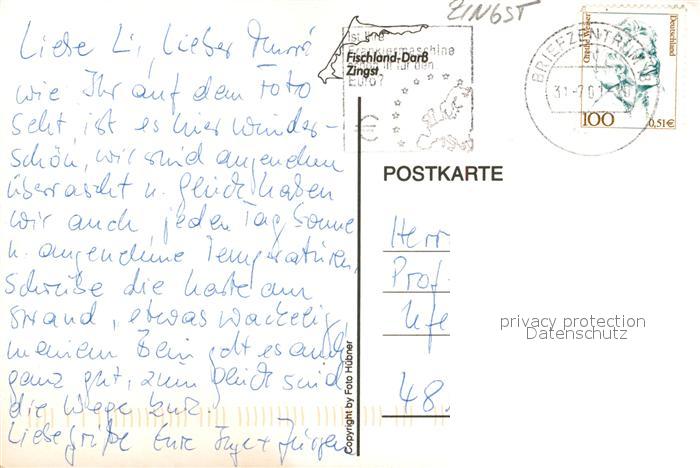 Liebe Li, lieber
wie Ihr auf dem Foto
seht, ist es hier wunder-
schön, wir sind angenehm
überrascht u. Glück haben
wir auch, jeden Tag Sonne
u. angenehme Temperaturen,
schreibe die Karte am
Strand, etwas wackelig,
meinem Bein geht es auch
ganz gut, zum Glück sind
die Wege kurz.
Liebe Grüße Eure Inge + Jürgen
ZINGST
Ist Ihre
Frankiermaschine
für den
Euro?
€
Fischland-Darß
Zingst
BRIEFZENTRUM
31.-7.01
Deutschland
100
0,51€
POSTKARTE
Herrn
Prof.
Ufe
48
Copyright by Foto Hübner
privacy protection
Datenschutz